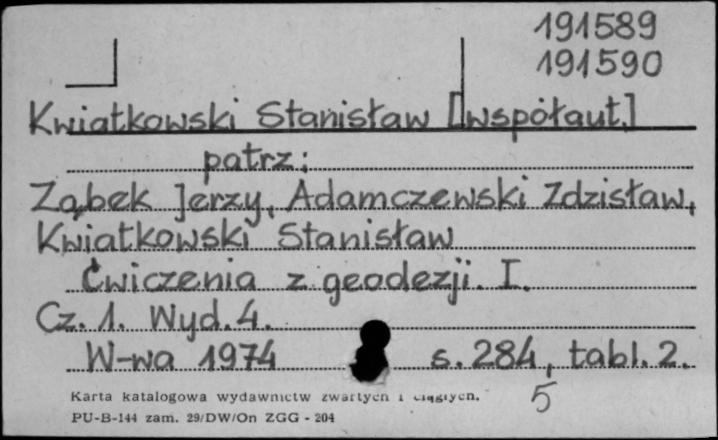 191589
191590
Kwiatkowski Stanisław [współaut.]
patrz:
Ząbek Jerzy, Adamczewski Zdzisław,
Kwiatkowski Stanisław
Ćwiczenia z geodezji. I.
Cz. 1. Wyd. 4.
W-wa 1974 s. 284, tabl. 2.
Karta katalogowa wydawnictw zwartych i ciągłych.
5
PU-B-144 zam. 29/DW/On ZGG - 204